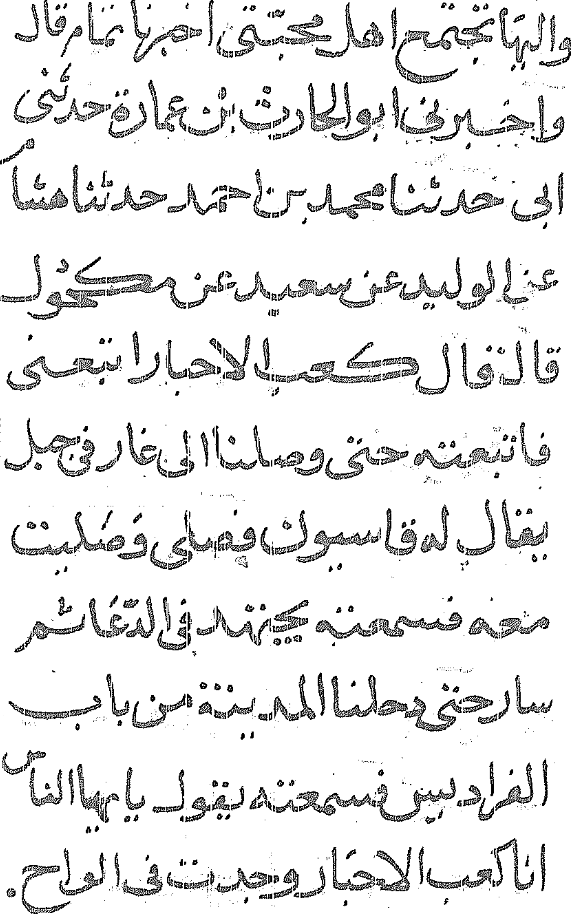 واليها تجتمع اهل محبتي اخبرنا تمام قال
واخبرني ابو الحارث بن عمارة حدثني
ابي حدثنا محمد بن احمد حدثنا هشام
عن الوليد عن سعيد عن مكحول
قال قال كعب الاحبار اتبعني
فاتبعته حتى وصلنا الى غار في جبل
يقال له قاسيون فصلى وصليت
معه فسمعته يجتهد في الدعا ثم
سار حتى دخلنا المدينة من باب
الفراديس فسمعته يقول يا يها الناس
انا كعب الاحبار وجدت في الواح.